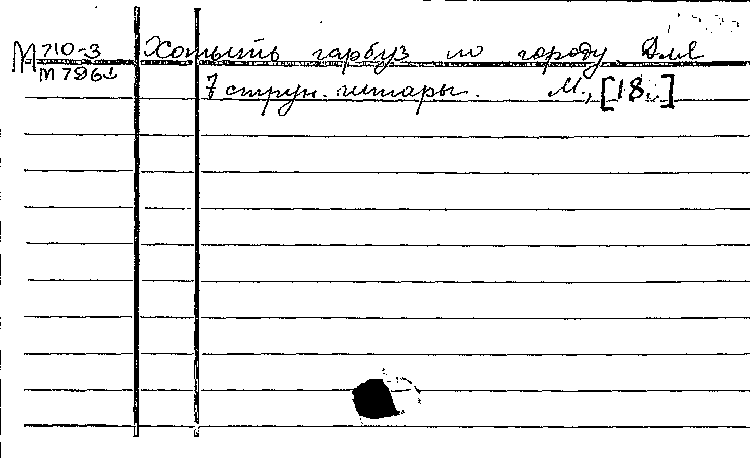 М 710-3 Хотыть гарбуз по городу. Для
М 7961 7 струн. гитары. М., [18..]